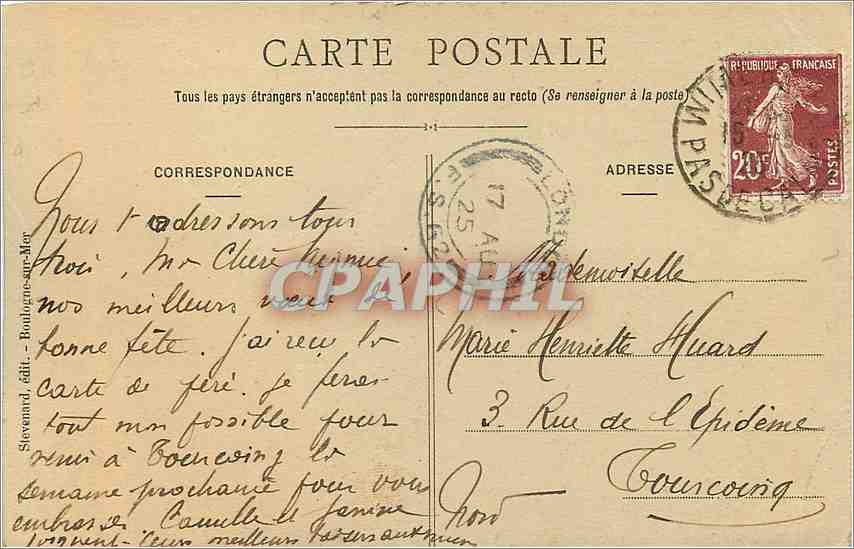 CARTE POSTALE
Tous les pays étrangers n'acceptent pas la correspondance au recto (Se renseigner à la poste)
REPUBLIQUE FRANÇAISE
20c
POSTES
PAS DE CALAIS
CORRESPONDANCE
ADRESSE
LOND
F.S. 62
17 AU
25
CPAPHIL
Stevenard, édit. - Boulogne-sur-Mer
Nous t'adressons tous
trois, ma Chère
nos meilleurs vœux de
bonne fête. J'ai reçu la
carte de féré. Je ferai
tout mon possible pour
venir à Tourcoing la
semaine prochaine pour vous
embrasser. Camille et Janine
joignent leurs meilleurs baisers aux miens
Mademoiselle
Marie Henriette Huard
3. Rue de l'Epidème
Tourcoing
Nord